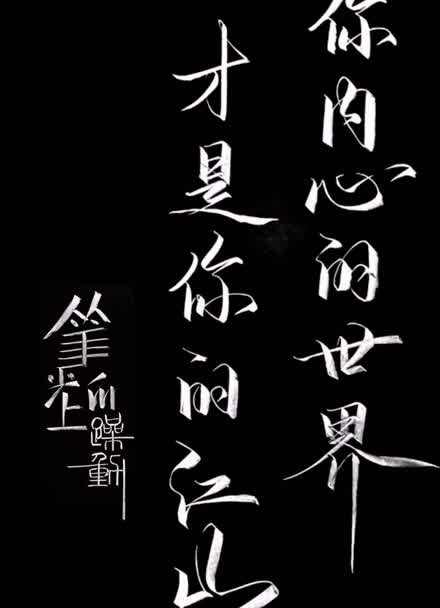 你内心的世界
才是你的江山
筆尖上
的躁動